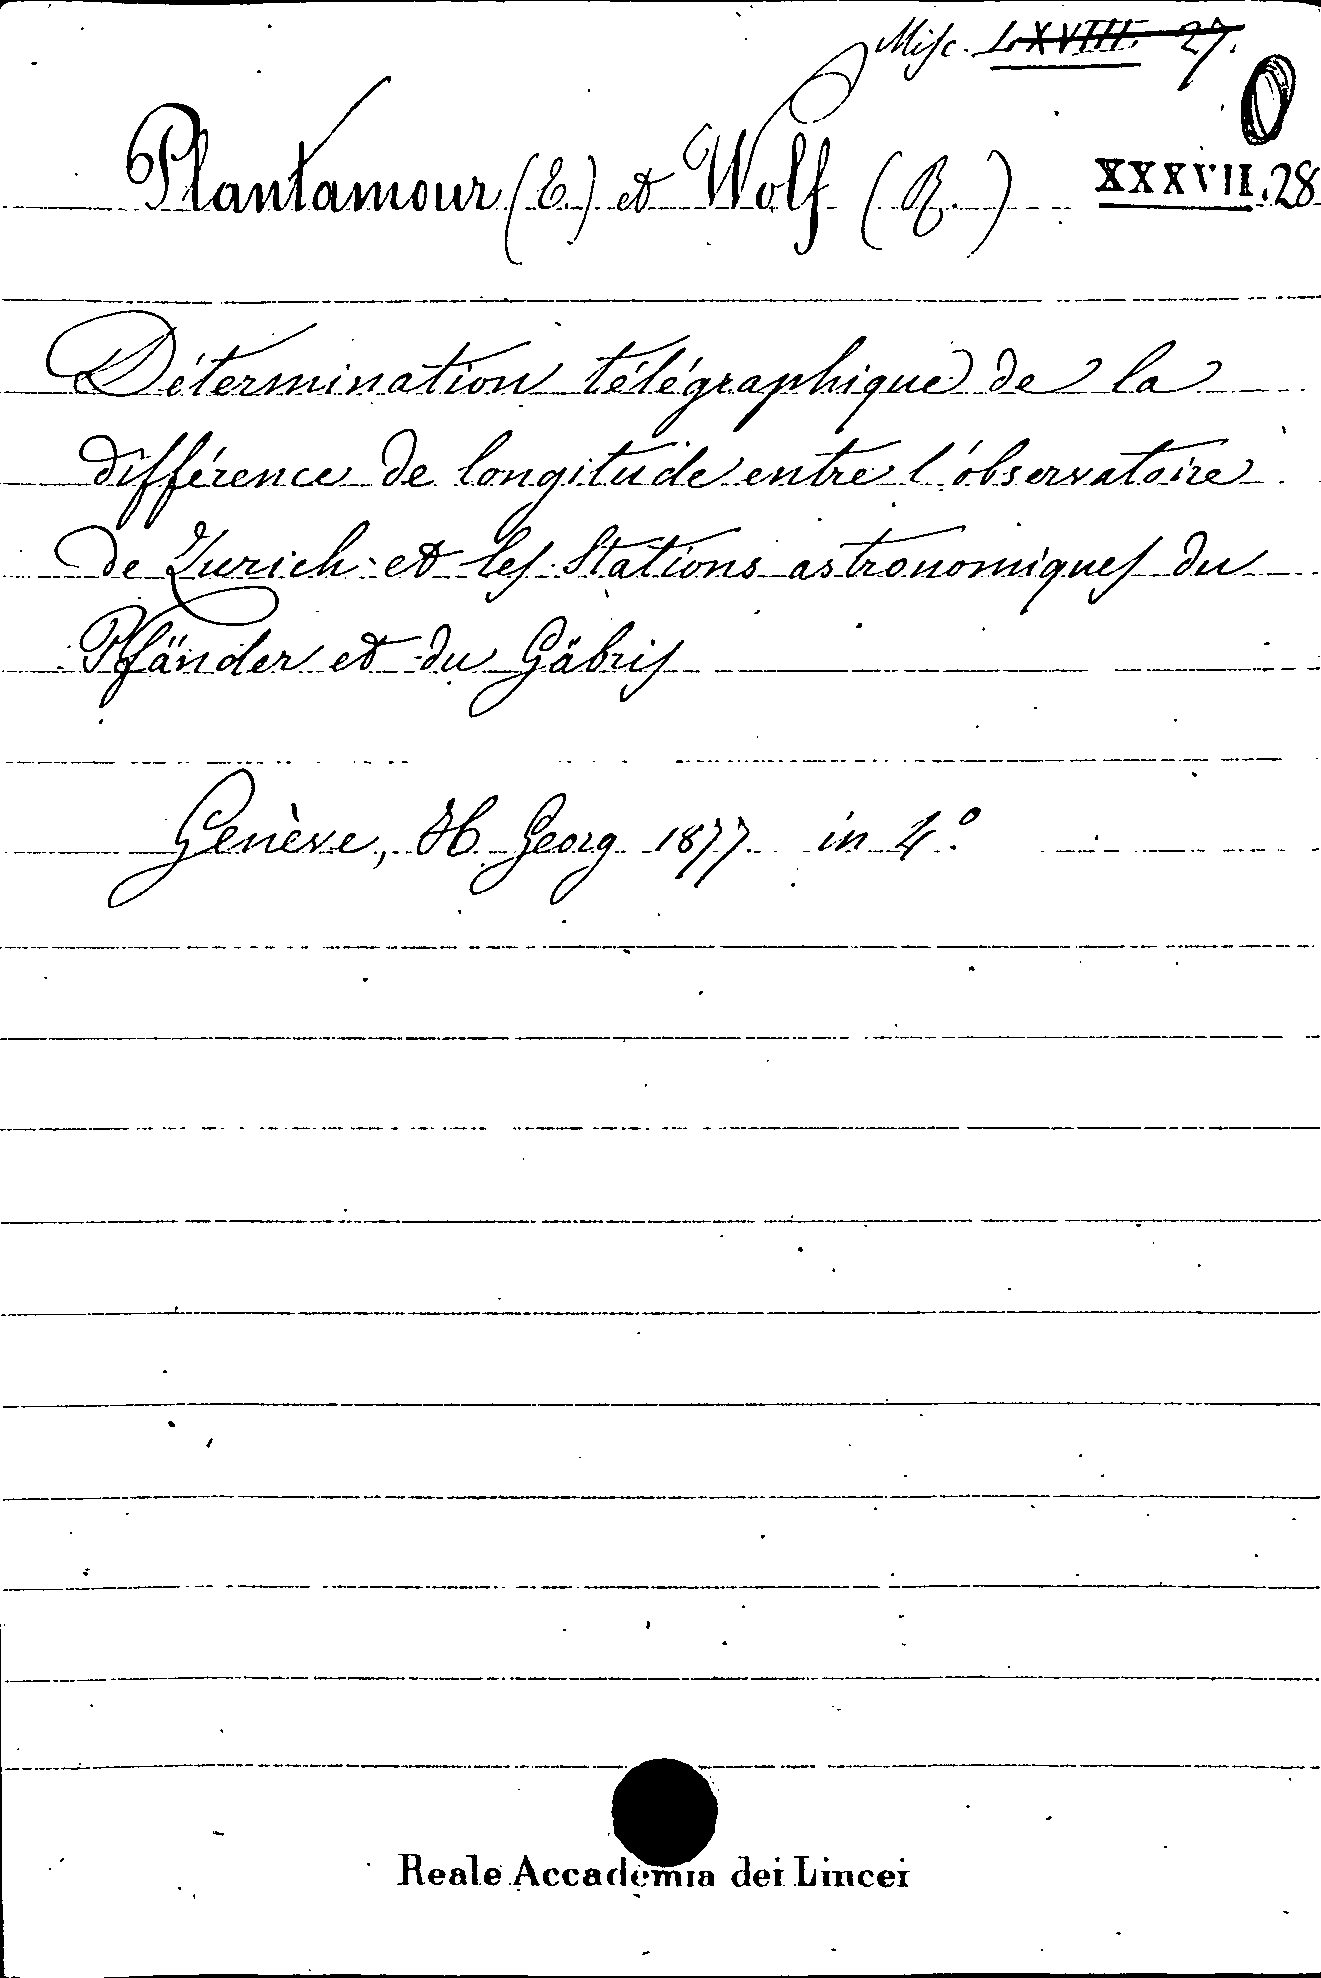 Misc. LXVIII. 27.
Plantamour (E.) et Wolf (R.) XXXVII.28
Détermination télégraphique de la
différence de longitude entre l'observatoire
de Zurich et les Stations astronomiques du
Pfänder et du Gäbris
Genève, H. Georg 1877 in 4°.
Reale Accademia dei Lincei